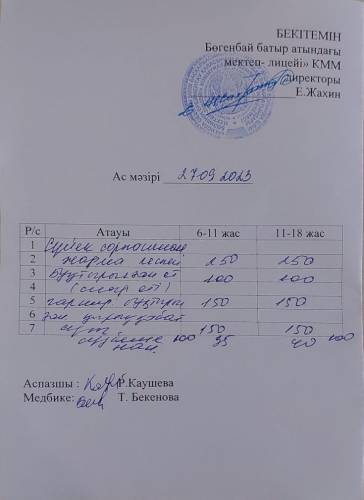 БЕКІТЕМІН
Бөгенбай батыр атындағы
мектеп- лицейі» КММ
директоры
Е.Жахин
Ас мәзірі 27.09.2023
Р/с Атауы 6-11 жас 11-18 жас
1 Сүйек сорпасымен
2 жарма кеспе 250 250
3 бұқтырылған ет 100 100
4 (сиыр еті)
5 гарнир бұқтыры 150 150
6
7 сүт 150 150
сүзбеше 100 100
нан 35 40
Аспазшы : Р.Каушева
Медбике: Т. Бекенова